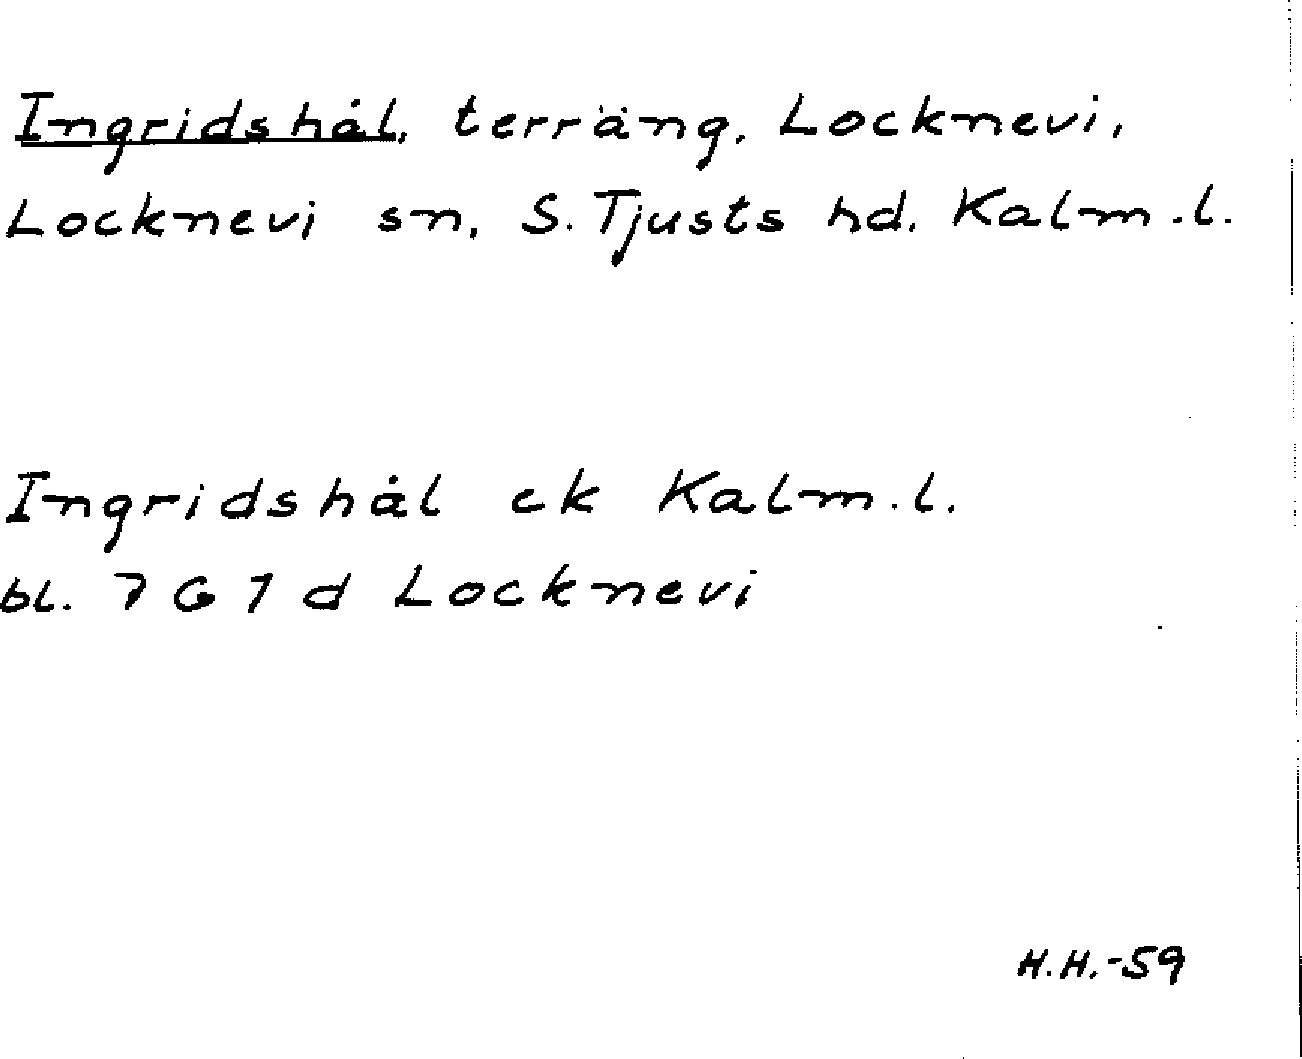 Ingridshål, terräng, Locknevi,
Locknevi sn, S. Tjusts hd. Kalm.l.
Ingridshål ek Kalm.l.
bl. 7 G 1 d Locknevi
H.H.-59